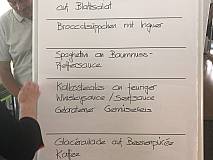 auf Blattsalat
Broccolisüppchen mit Ingwer
Spaghettini an Baumnuss-
Pfeffersauce
Kalbssteaks an feuriger
Whiskysauce / Senfsauce
Gebratener Gemüsereis
Glacéroulade auf Beerenpürée
Kaffee